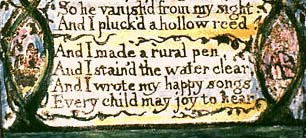 So he vanish'd from my sight.
And I pluck'd a hollow reed.
And I made a rural pen,
And I stain'd the water clear,
And I wrote my happy songs
Every child may joy to hear